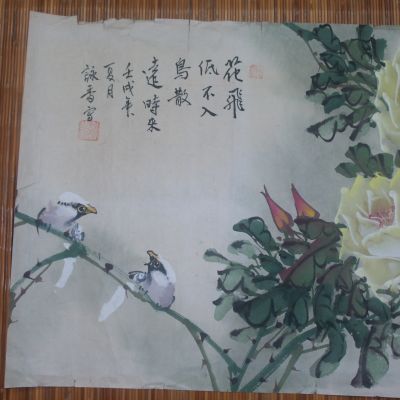 花飛
低不入
鳥散
遠時來
壬戌年
夏月
詠香寫